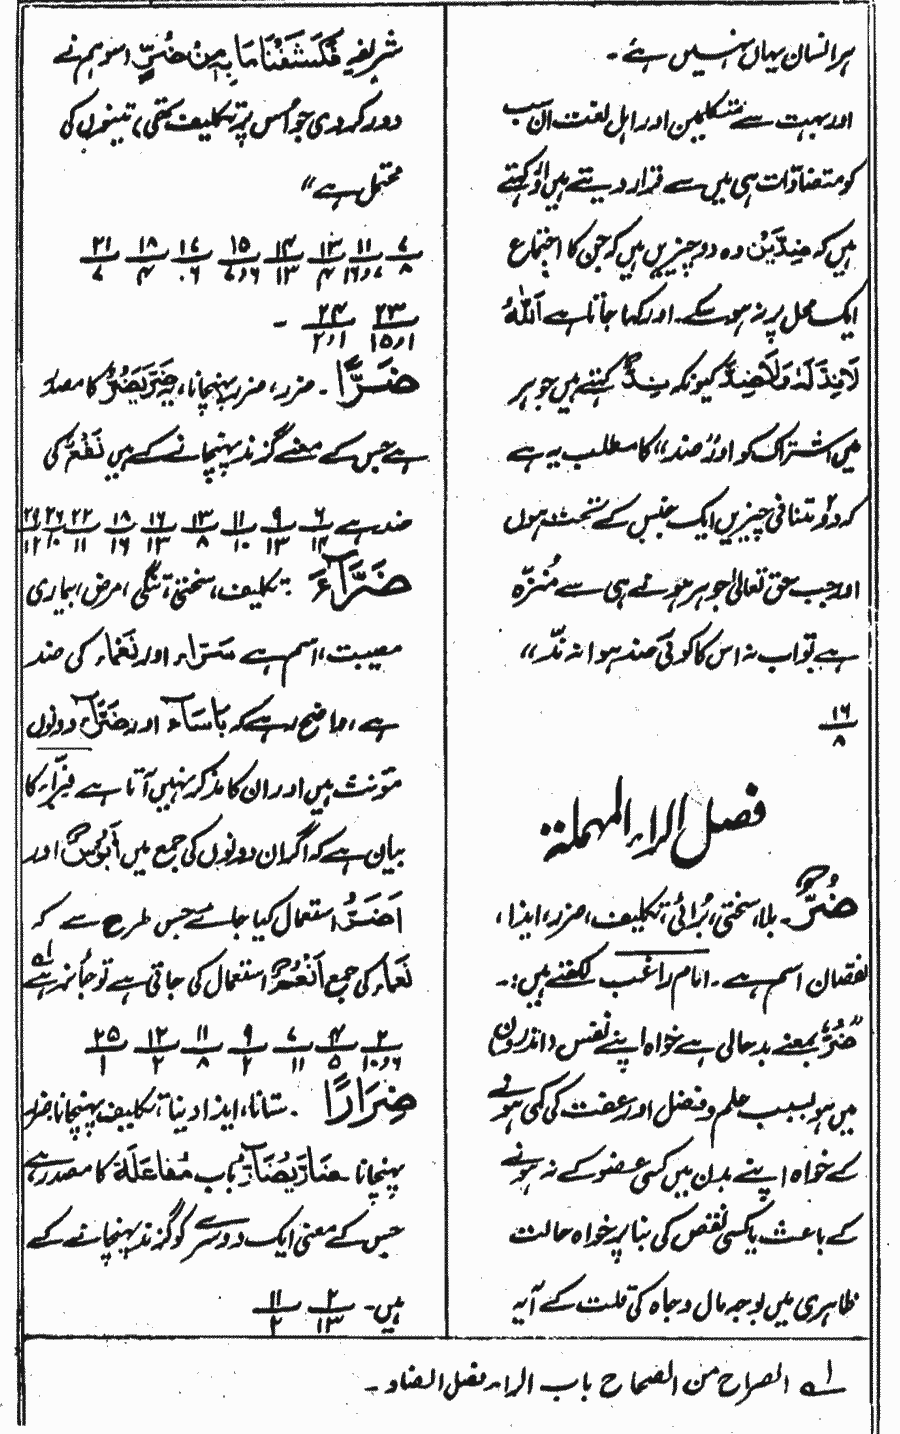 ہر انسان یہاں نہیں ہے۔
اور بہت سے متکلمین اور اہل لغت ان سب
کو متضادات ہی میں سے قرار دیتے ہیں اور کہتے
ہیں کہ ضِدَّیْن وہ دو چیزیں ہیں کہ جن کا اجتماع
ایک محل پر نہ ہو سکے۔ اور کہا جاتا ہے اَللّٰہُ
لَانِدَّ لَہٗ وَلَاضِدَّ کیونکہ نِدّ کہتے ہیں جوہر
میں اشتراک کو اور "ضد" کا مطلب یہ ہے
کہ دو متنافی چیزیں ایک جنس کے تحت ہوں
اور جب حق تعالیٰ جوہر ہونے ہی سے مُنزّہ
ہے تو اب نہ اس کا کوئی ضد ہوا نہ نِدّ"
۱۶
۸
فصل الراء المہملۃ
ضُرٌّ۔ بلا، سختی، بُرائی، تکلیف، ضرر، ایذا،
نقصان اسم ہے۔ امام راغب لکھتے ہیں:۔
"ضُرٌّ بمعنے بدحالی ہے خواہ اپنے نفس (اندرون)
میں ہو بسبب علم و فضل اور عفت کی کمی ہونے
کے خواہ اپنے بدن میں کسی عضو کے نہ ہونے
کے باعث یا کسی نقص کی بنا پر خواہ حالت
ظاہری میں بوجہ مال و جاہ کی قلت کے آیہ
شریفہ فَکَشَفْنَا مَا بِہٖ مِنْ ضُرٍّ (سو ہم نے
دور کردی جو اُس پر تکلیف تھی) تینوں کی
محتمل ہے"
۷ ۱۱ ۱۳ ۱۴ ۱۵ ۱۷ ۱۸ ۲۱
۸ ۷و۱۶ ۴ ۱۳ ۶و۷ ۶۰ ۴ ۷
۲۳ ۲۴
۱و۱۵ ۱و۲ ۔
ضَرًّا۔ ضرر، ضرر پہنچانا، یہ ضَرَّ یَضُرُّ کا مصدر
ہے جس کے معنے گزند پہنچانے کے ہیں نَفْعٌ کی
ضد ہے ۶ ۹ ۱۱ ۱۳ ۱۶ ۱۸ ۲۲ ۲۶ ۲۹
۱۴ ۱۳ ۱۰ ۸ ۱۳ ۱۶ ۱۱ ۱۰ ۱۲
ضَرَّآءَ۔ تکلیف، سختی، تنگی، مرض، بیماری
مصیبت، اسم ہے سَرّاء اور نَعْماء کی ضد
ہے، واضح رہے کہ بَاسَآء اور ضَرَّآء دونوں
مؤنث ہیں اور ان کا مذکر نہیں آتا ہے فرّاء کا
بیان ہے کہ اگر ان دونوں کی جمع میں اَبْؤُسٌ اور
اَضَرُّ استعمال کیا جائے جس طرح سے کہ
نَعماء کی جمع اَنْعُمٌ استعمال کی جاتی ہے تو جائز ہے ۱؎
۲ ۴ ۷ ۹ ۱۱ ۱۲ ۲۵
۶و۱۰ ۵ ۱۱ ۲ ۸ ۲ ۱
ضِرَارًا۔ ستانا، ایذا دینا، تکلیف پہنچانا، ضرر
پہنچانا ضَارَّ یُضَآرُّ باب مُفاعَلَۃ کا مصدر ہے،
جس کے معنی ایک دوسرے کو گزند پہنچانے کے
ہیں۔ ۲ ۱۱
۱۳ ۲
۱؎ الصراح من الصحاح باب الراء فصل الضاد۔